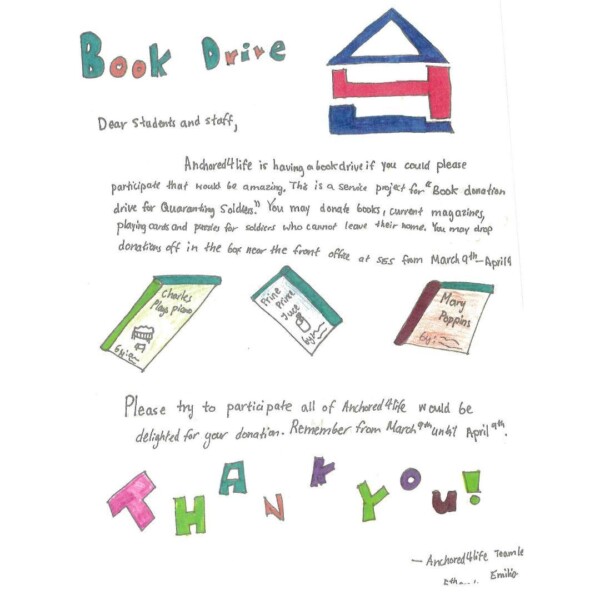 Book Drive
Dear Students and staff,
Anchored4life is having a book drive if you could please
participate that would be amazing. This is a service project for "Book donation
drive for Quaranting Soldiers." You may donate books, current magazines,
playing cards and puzzles for soldiers who cannot leave their home. You may drop
donations off in the box near the front office at SES from March 9th-April 9
Charles
Plays piano
by:
Prine
Juce
by
Mary
Poppins
by:
Please try to participate all of Anchored4life would be
delighted for your donation. Remember from March 9th until April 9th.
THANK YOU!
- Anchored4life Team
Emilio